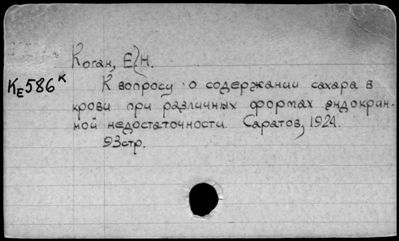 Коган, Е.Н.
КЕ586к
К вопросу о содержании сахара в
крови при различных формах эндокрин-
ной недостаточности. Саратов, 1924.
93стр.